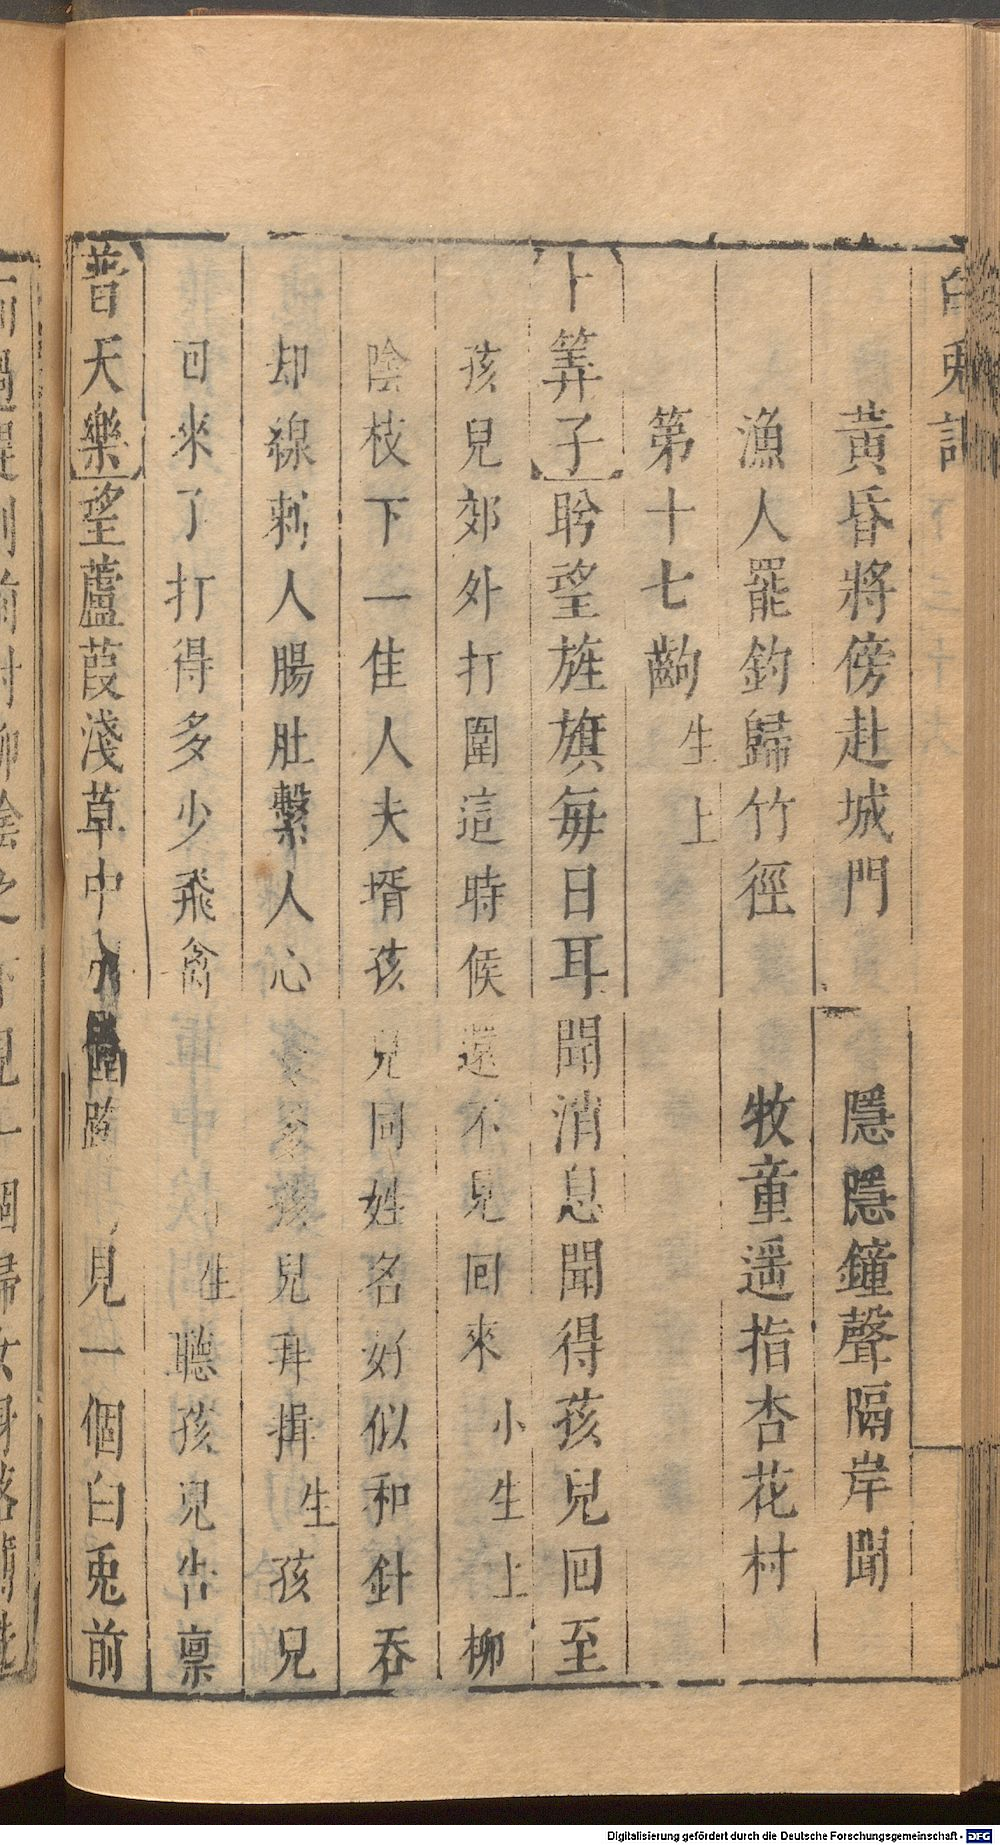 白兎記
黃昏將傍赴城門　隱隱鐘聲隔岸聞
漁人罷釣歸竹徑　牧童遥指杏花村
第十七齣 生上
卜筭子 聆望旌旗每日耳聞消息聞得孩兒回至
孩兒郊外打圍這時候還不見回來 小生上 柳
陰枝下一佳人夫壻孩兒同姓名好似和針吞
却線刺人腸肚繫人心 孩兒拜揖 生 孩兒
回來了打得多少飛禽 生 聽孩兒告禀
普天樂 望蘆葭淺草中 見一個白兎前
Digitalisierung gefördert durch die Deutsche Forschungsgemeinschaft - DFG